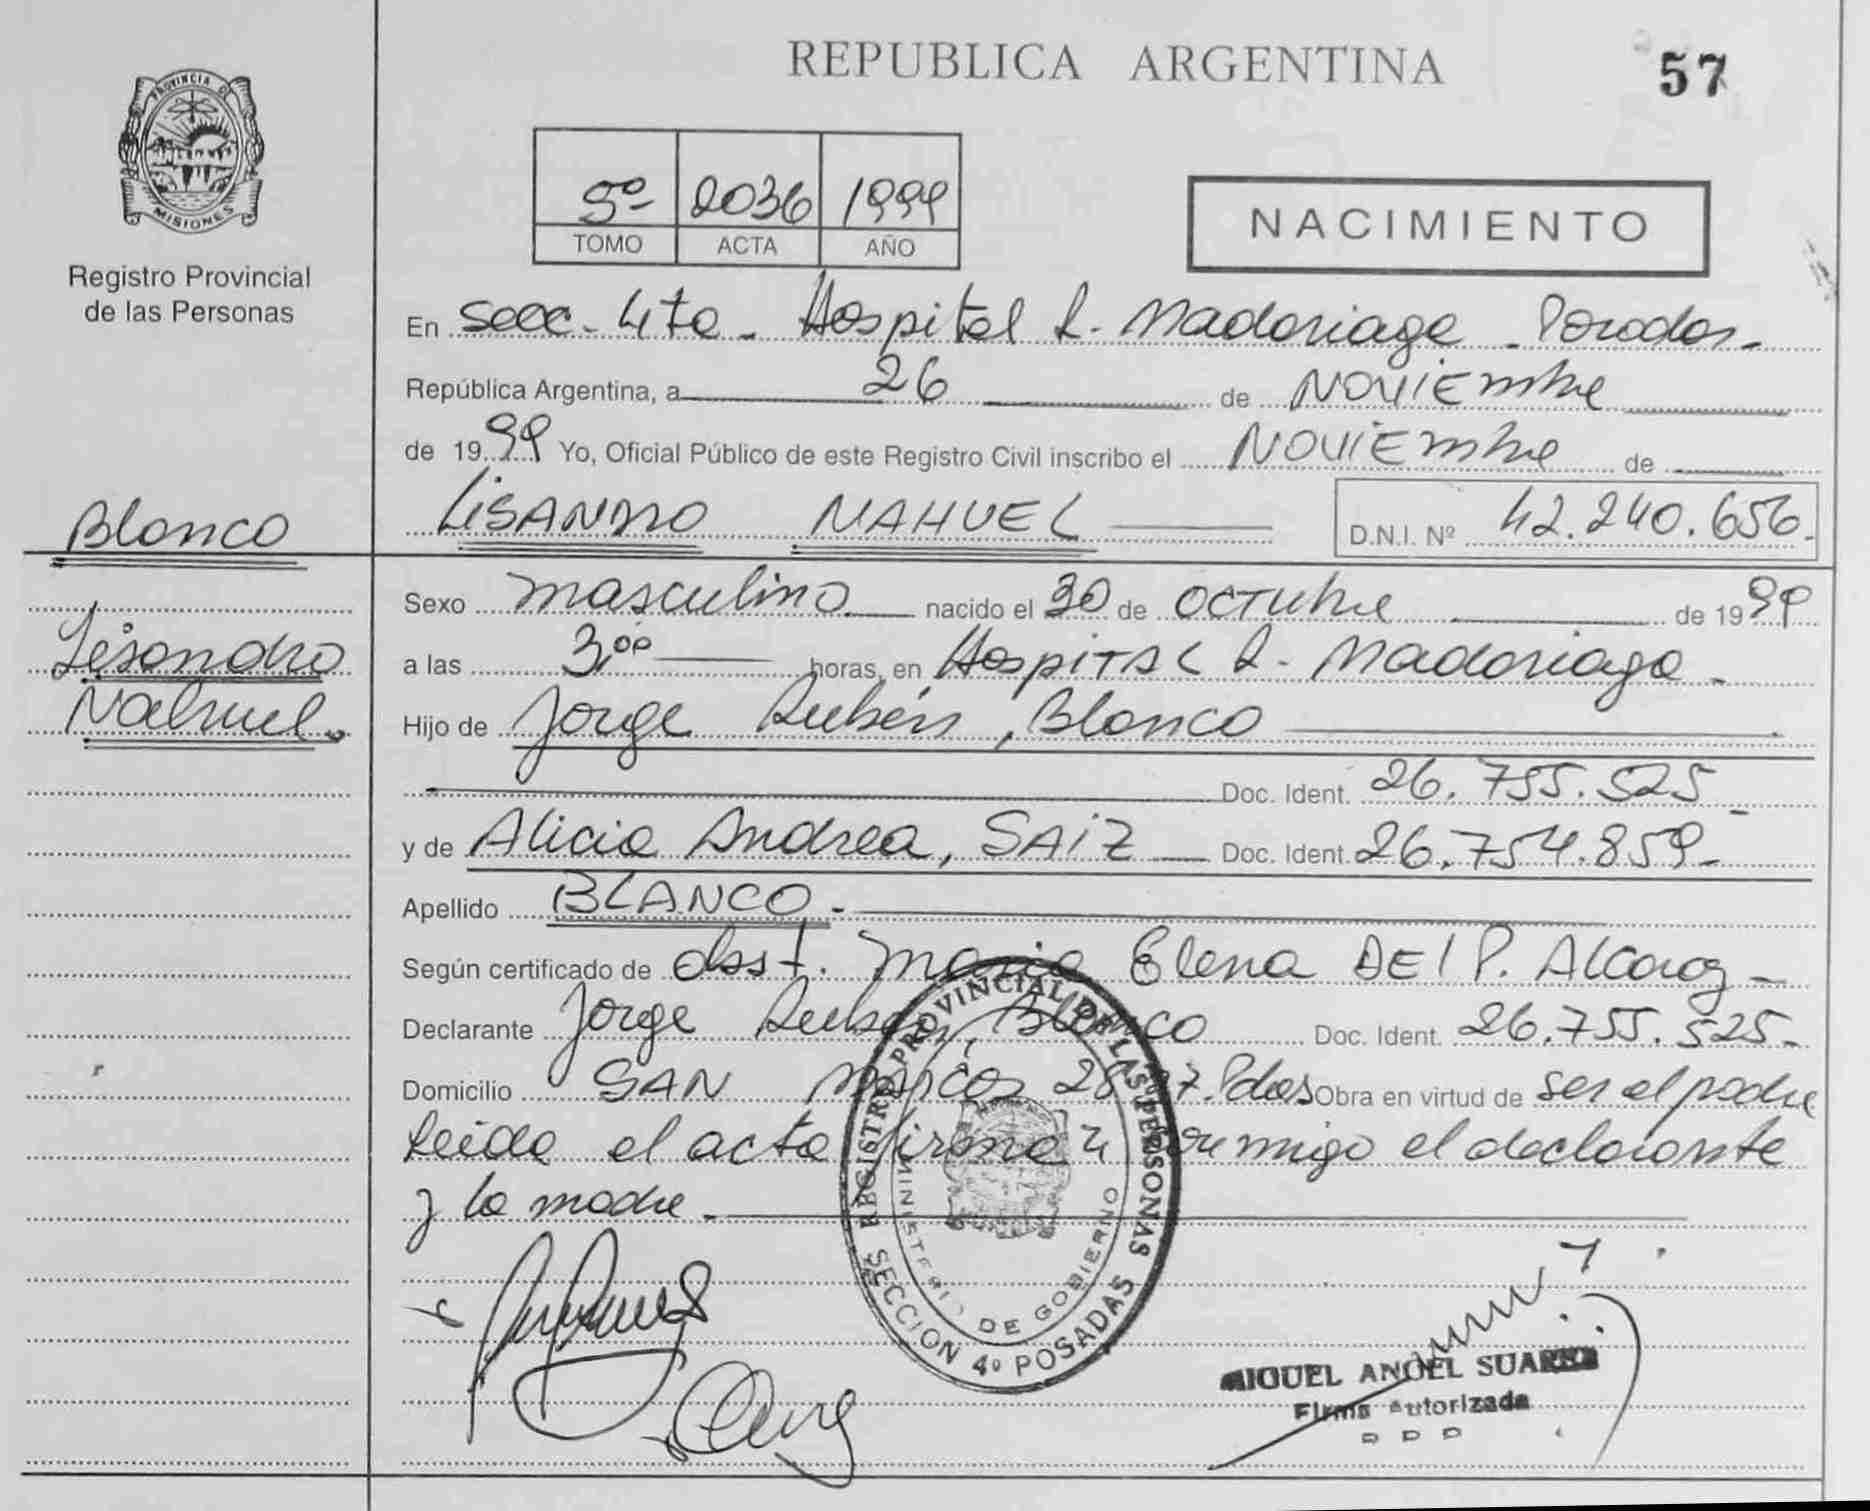 REPUBLICA ARGENTINA
57
PROVINCIA DE
MISIONES
Registro Provincial
de las Personas
5º 2036 1999
TOMO ACTA AÑO
NACIMIENTO
En Secc. 4ta. Hospital R. Madariaga - Posadas -
República Argentina, a 26 de NOVIEmbre
de 1999 Yo, Oficial Público de este Registro Civil inscribo el NOVIEmbre de
Blanco
LISANDRO NAHUEL D.N.I. Nº 42.240.656.
Sexo masculino nacido el 30 de OCTUbre de 1999
Lisandro
a las 3,00 horas, en HospiTAL R. Madariaga -
Nahuel.
Hijo de Jorge Rubén, Blanco
Doc. Ident. 26.755.525 -
y de Alicia Andrea, SAIZ Doc. Ident. 26.754.859 -
Apellido BLANCO -
Según certificado de obst. Maria Elena DEl P. Alcaraz -
Declarante Jorge Rubén, Blanco Doc. Ident. 26.755.525 -
Domicilio SAN MARCOS 7. Pdas Obra en virtud de ser el padre
Leida el acta firman conmigo el declarante
y la madre.
REGISTRO PROVINCIAL DE LAS PERSONAS
MINISTERIO DE GOBIERNO
SECCION 4º POSADAS
MIGUEL ANGEL SUAREZ
Firma Autorizada